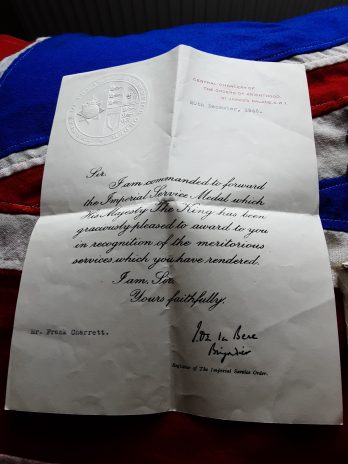 CENTRAL CHANCERY OF
THE ORDERS OF KNIGHTHOOD,
ST JAMES'S PALACE, S.W.1
20th December, 1946.
Sir,
I am commanded to forward
the Imperial Service Medal which
His Majesty The King has been
graciously pleased to award to you
in recognition of the meritorious
services which you have rendered.
I am, Sir,
Yours faithfully,
Mr. Frank Charrett.
Brigadier
Registrar of The Imperial Service Order.